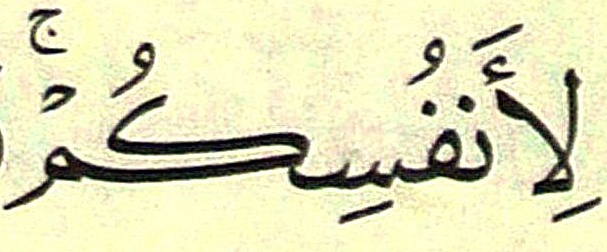 لِأَنفُسِكُمْ ۚ